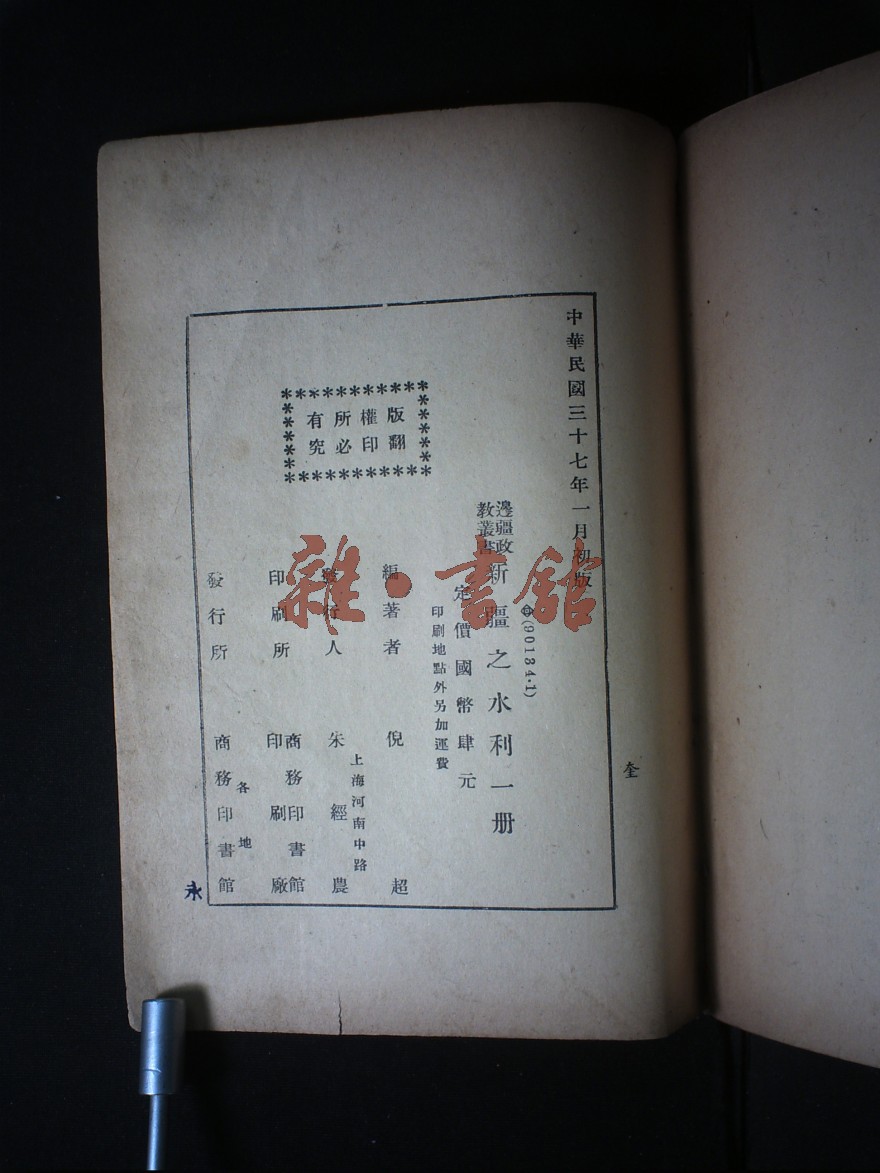 中華民國三十七年一月初版
(90134·1)
邊疆政教叢書
新疆之水利一册
定價國幣肆元
印刷地點外另加運費
版權所有
翻印必究
編著者 倪超
上海河南中路
發行人 朱經農
印刷所 商務印書館印刷廠
各地
發行所 商務印書館
奎
永
雜·書館